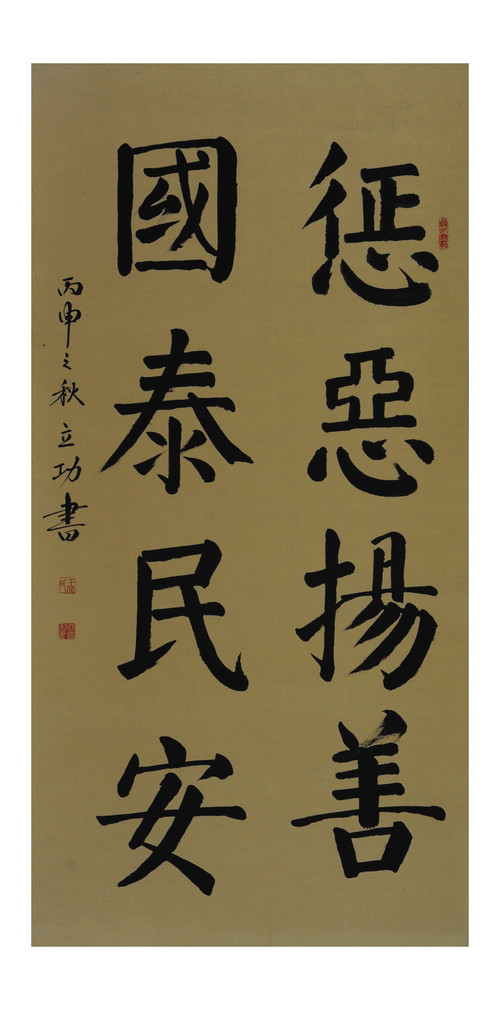 惩惡揚善
國泰民安
丙申之秋立功書